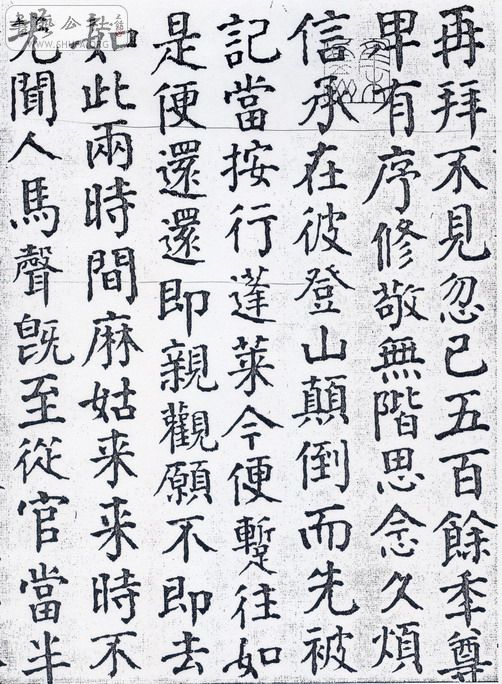 再拜不見忽已五百餘秊尊
卑有序修敬無階思念久煩
信承在彼登山顛倒而先被
記當按行蓬萊今便蹔往如
是便還還即親觀願不即去
如此兩時間麻姑来来時不
先聞人馬聲旣至從官當半